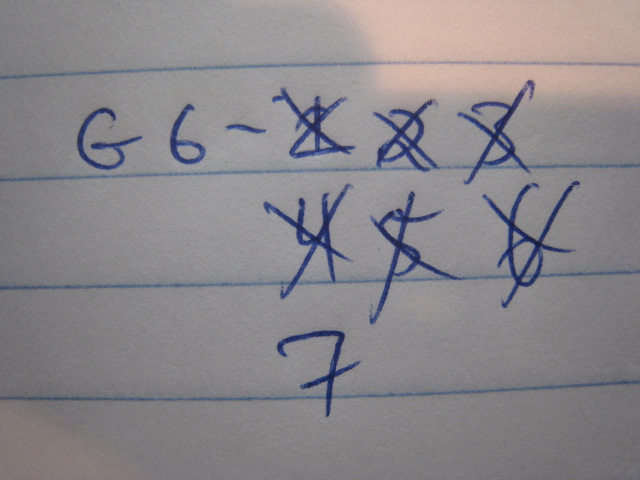 G6-1 2 3
4 5 6
7